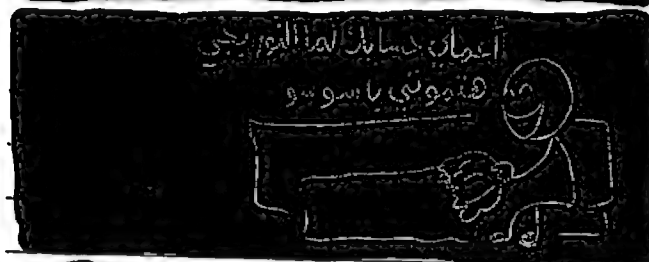 أعملي حسابك لما النور يجي
هتموتي يا سوسو